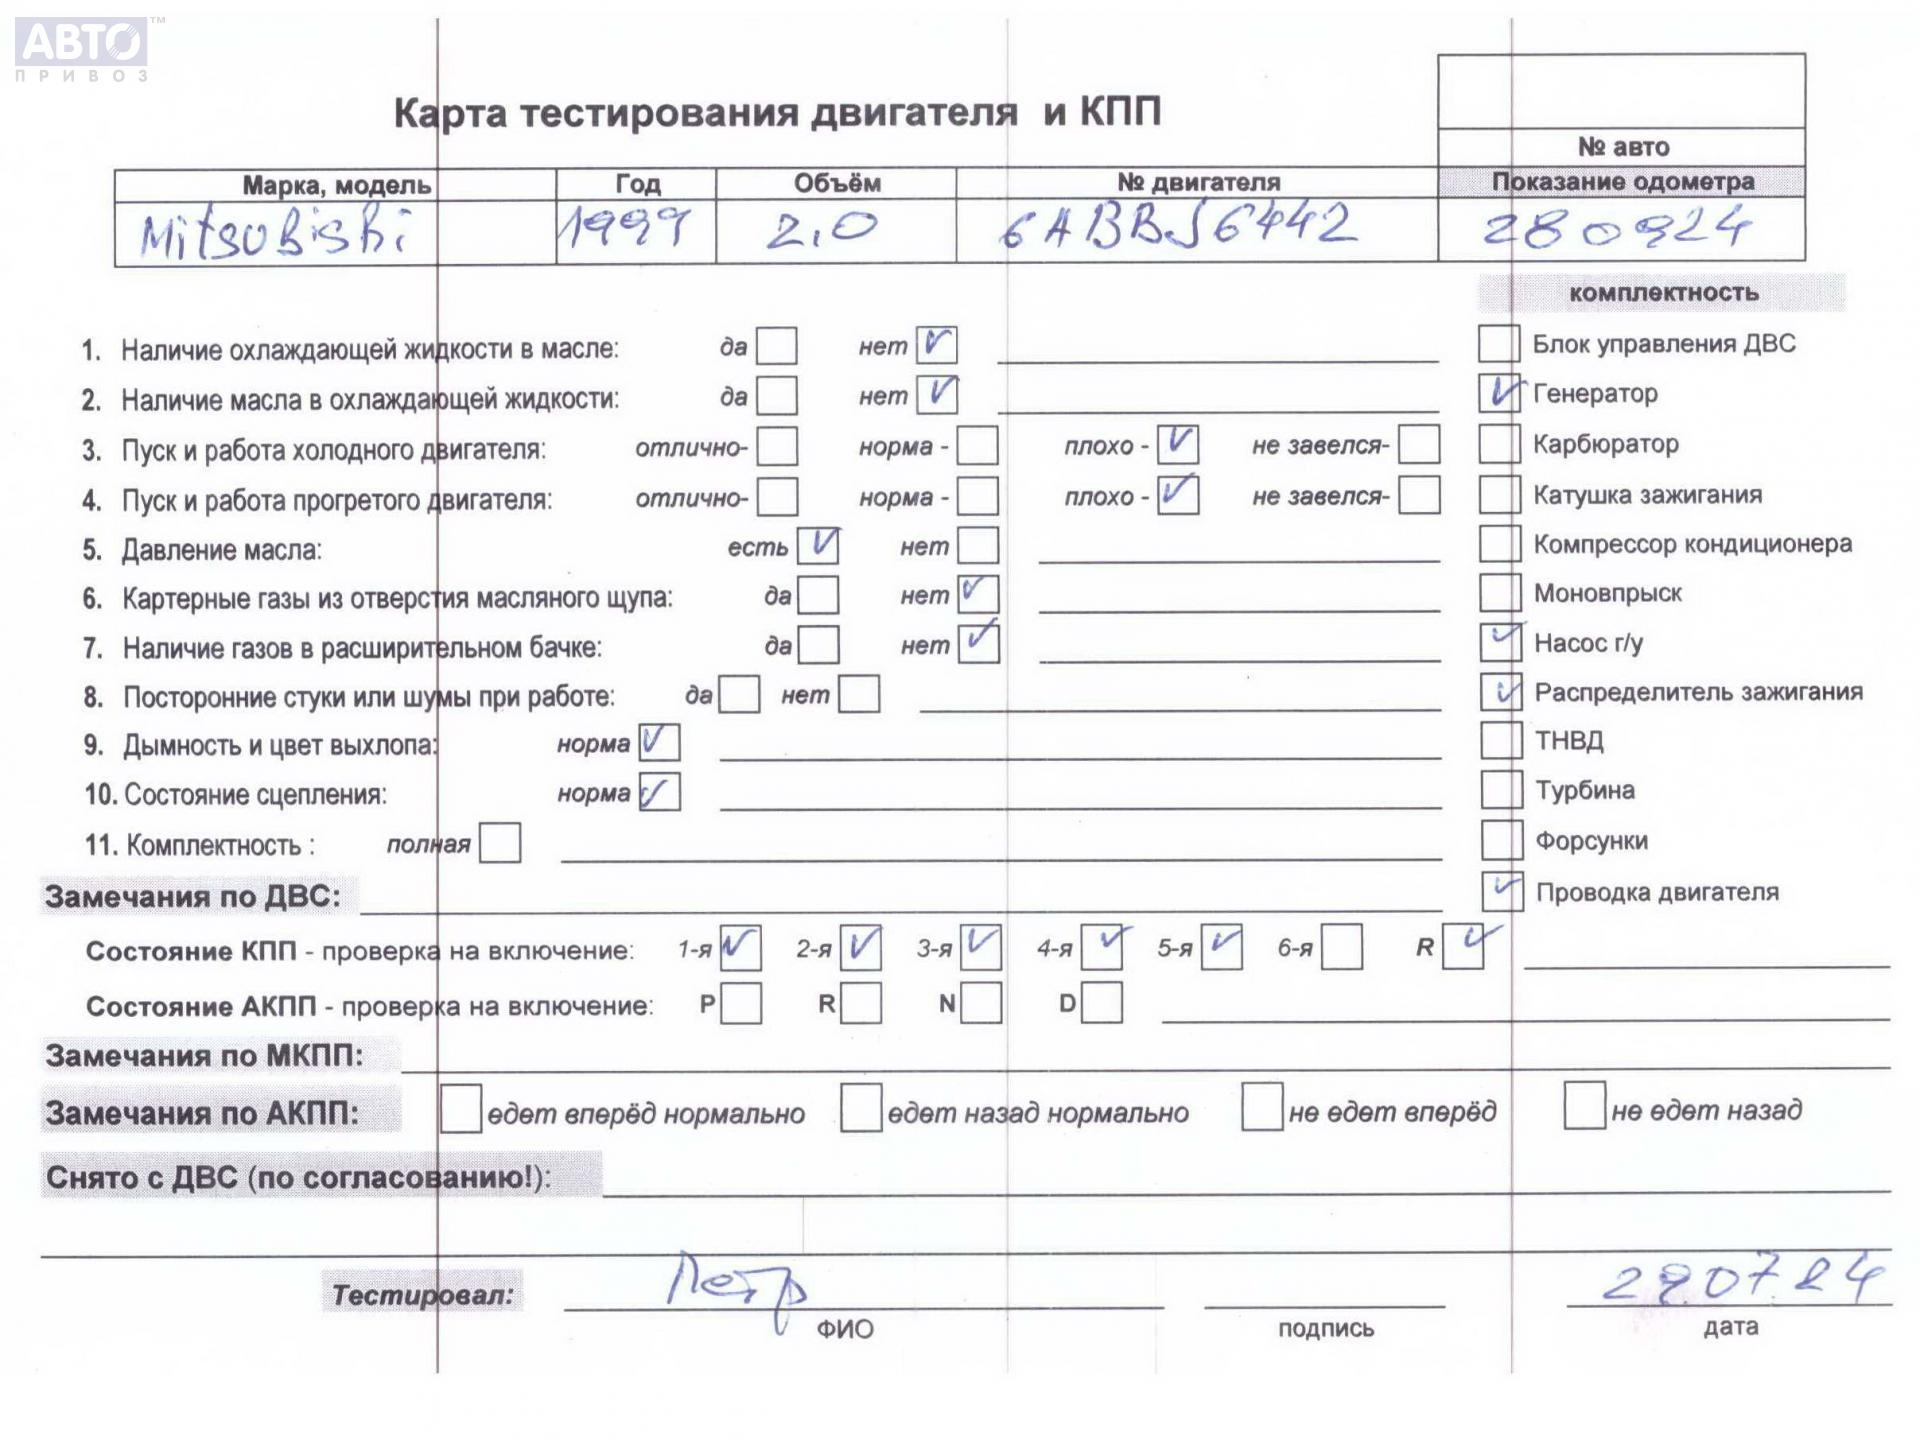 АВТО™
ПРИВОЗ
Карта тестирования двигателя и КПП
№ авто
Марка, модель Год Объём № двигателя Показание одометра
Mitsubishi 1999 2,0 6ABBJ6442 280924
комплектность
1. Наличие охлаждающей жидкости в масле: да нет ✓ Блок управления ДВС
2. Наличие масла в охлаждающей жидкости: да нет ✓ ✓ Генератор
3. Пуск и работа холодного двигателя: отлично- норма - плохо - ✓ не завелся- Карбюратор
4. Пуск и работа прогретого двигателя: отлично- норма - плохо - ✓ не завелся- Катушка зажигания
5. Давление масла: есть ✓ нет Компрессор кондиционера
6. Картерные газы из отверстия масляного щупа: да нет ✓ Моновпрыск
7. Наличие газов в расширительном бачке: да нет ✓ ✓ Насос г/у
8. Посторонние стуки или шумы при работе: да нет ✓ Распределитель зажигания
9. Дымность и цвет выхлопа: норма ✓ ТНВД
10. Состояние сцепления: норма ✓ Турбина
11. Комплектность : полная Форсунки
Замечания по ДВС: ✓ Проводка двигателя
Состояние КПП - проверка на включение: 1-я ✓ 2-я ✓ 3-я ✓ 4-я ✓ 5-я ✓ 6-я R ✓
Состояние АКПП - проверка на включение: P R N D
Замечания по МКПП:
Замечания по АКПП: едет вперёд нормально едет назад нормально не едет вперёд не едет назад
Снято с ДВС (по согласованию!):
Тестировал: Петр 29.07.24
ФИО подпись дата